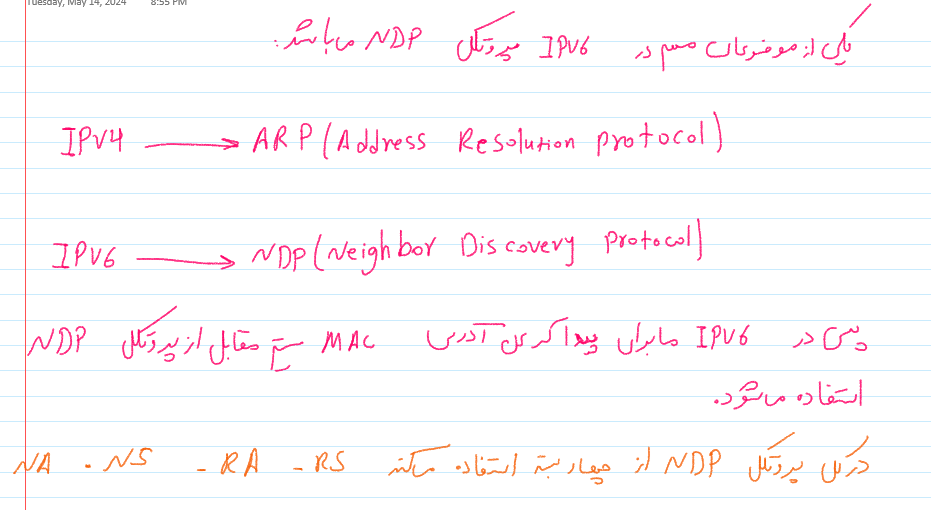 Tuesday, May 14, 2024 8:55 PM
یکی از موضوعات مهم در IPV6 پروتکل NDP میباشد:
IPV4 → ARP (Address Resolution protocol)
IPV6 → NDP (Neighbor Discovery protocol)
پس در IPV6 ما برای پیدا کردن آدرس MAC سمت مقابل از پروتکل NDP
استفاده میشود.
در کل پروتکل NDP از چهار بسته استفاده میکند RS - RA - NS - NA